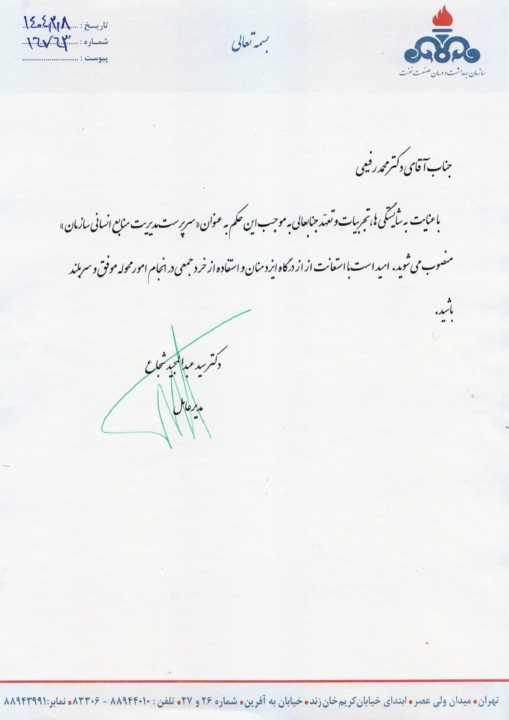 بسمه تعالی
تاریخ : ۱۴۰۴/۲/۸
شماره :
پیوست :
سازمان بهداشت و درمان صنعت نفت
جناب آقای دکتر محمد رفیعی
با عنایت به شایستگی ها، تجربیات و تعهد جنابعالی به موجب این حکم به عنوان «سرپرست مدیریت منابع انسانی سازمان»
منصوب می شوید. امید است با استعانت از از درگاه ایزد منان و استفاده از خرد جمعی در انجام امور محوله موفق و سربلند
باشید.
دکتر سید عبدالمجید شجاع
مدیرعامل
تهران • میدان ولی عصر • ابتدای خیابان کریم خان زند • خیابان به آفرین • شماره ۲۶ و ۲۷ • تلفن : ۸۸۹۴۴۰۱۰ - ۸۳۳۰۶ • نمابر:۸۸۹۴۳۹۹۱